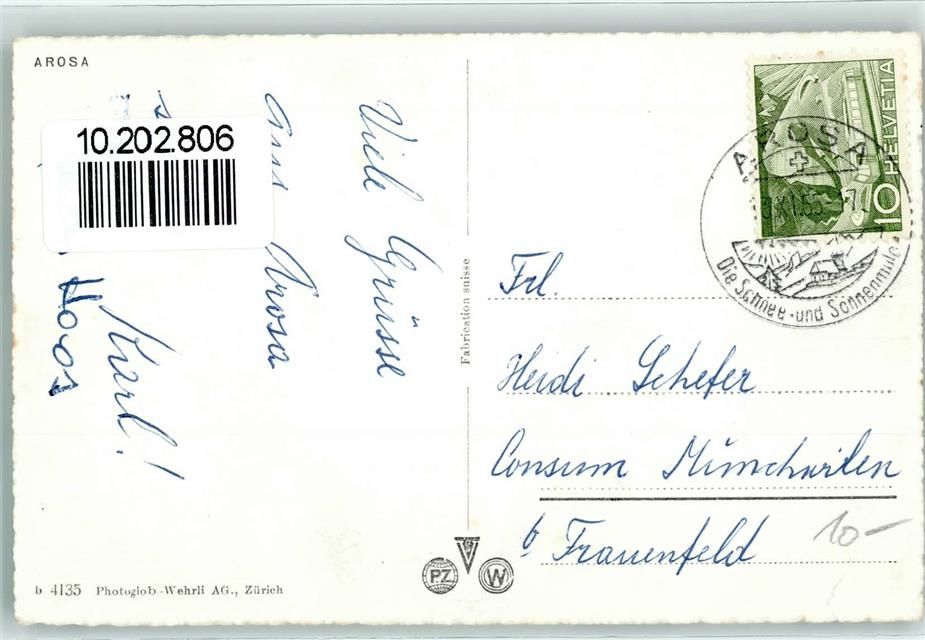 AROSA
10.202.806
Viele Grüsse
aus Arosa
Karl!
Hoos
Fabrication suisse
10 HELVETIA
AROSA
Die Schnee- und Sonnenmulde
Frl.
Heidi Schefer
Consum Münchwilen
b Frauenfeld
10-
PZ
W
b 4135 Photoglob-Wehrli AG., Zürich